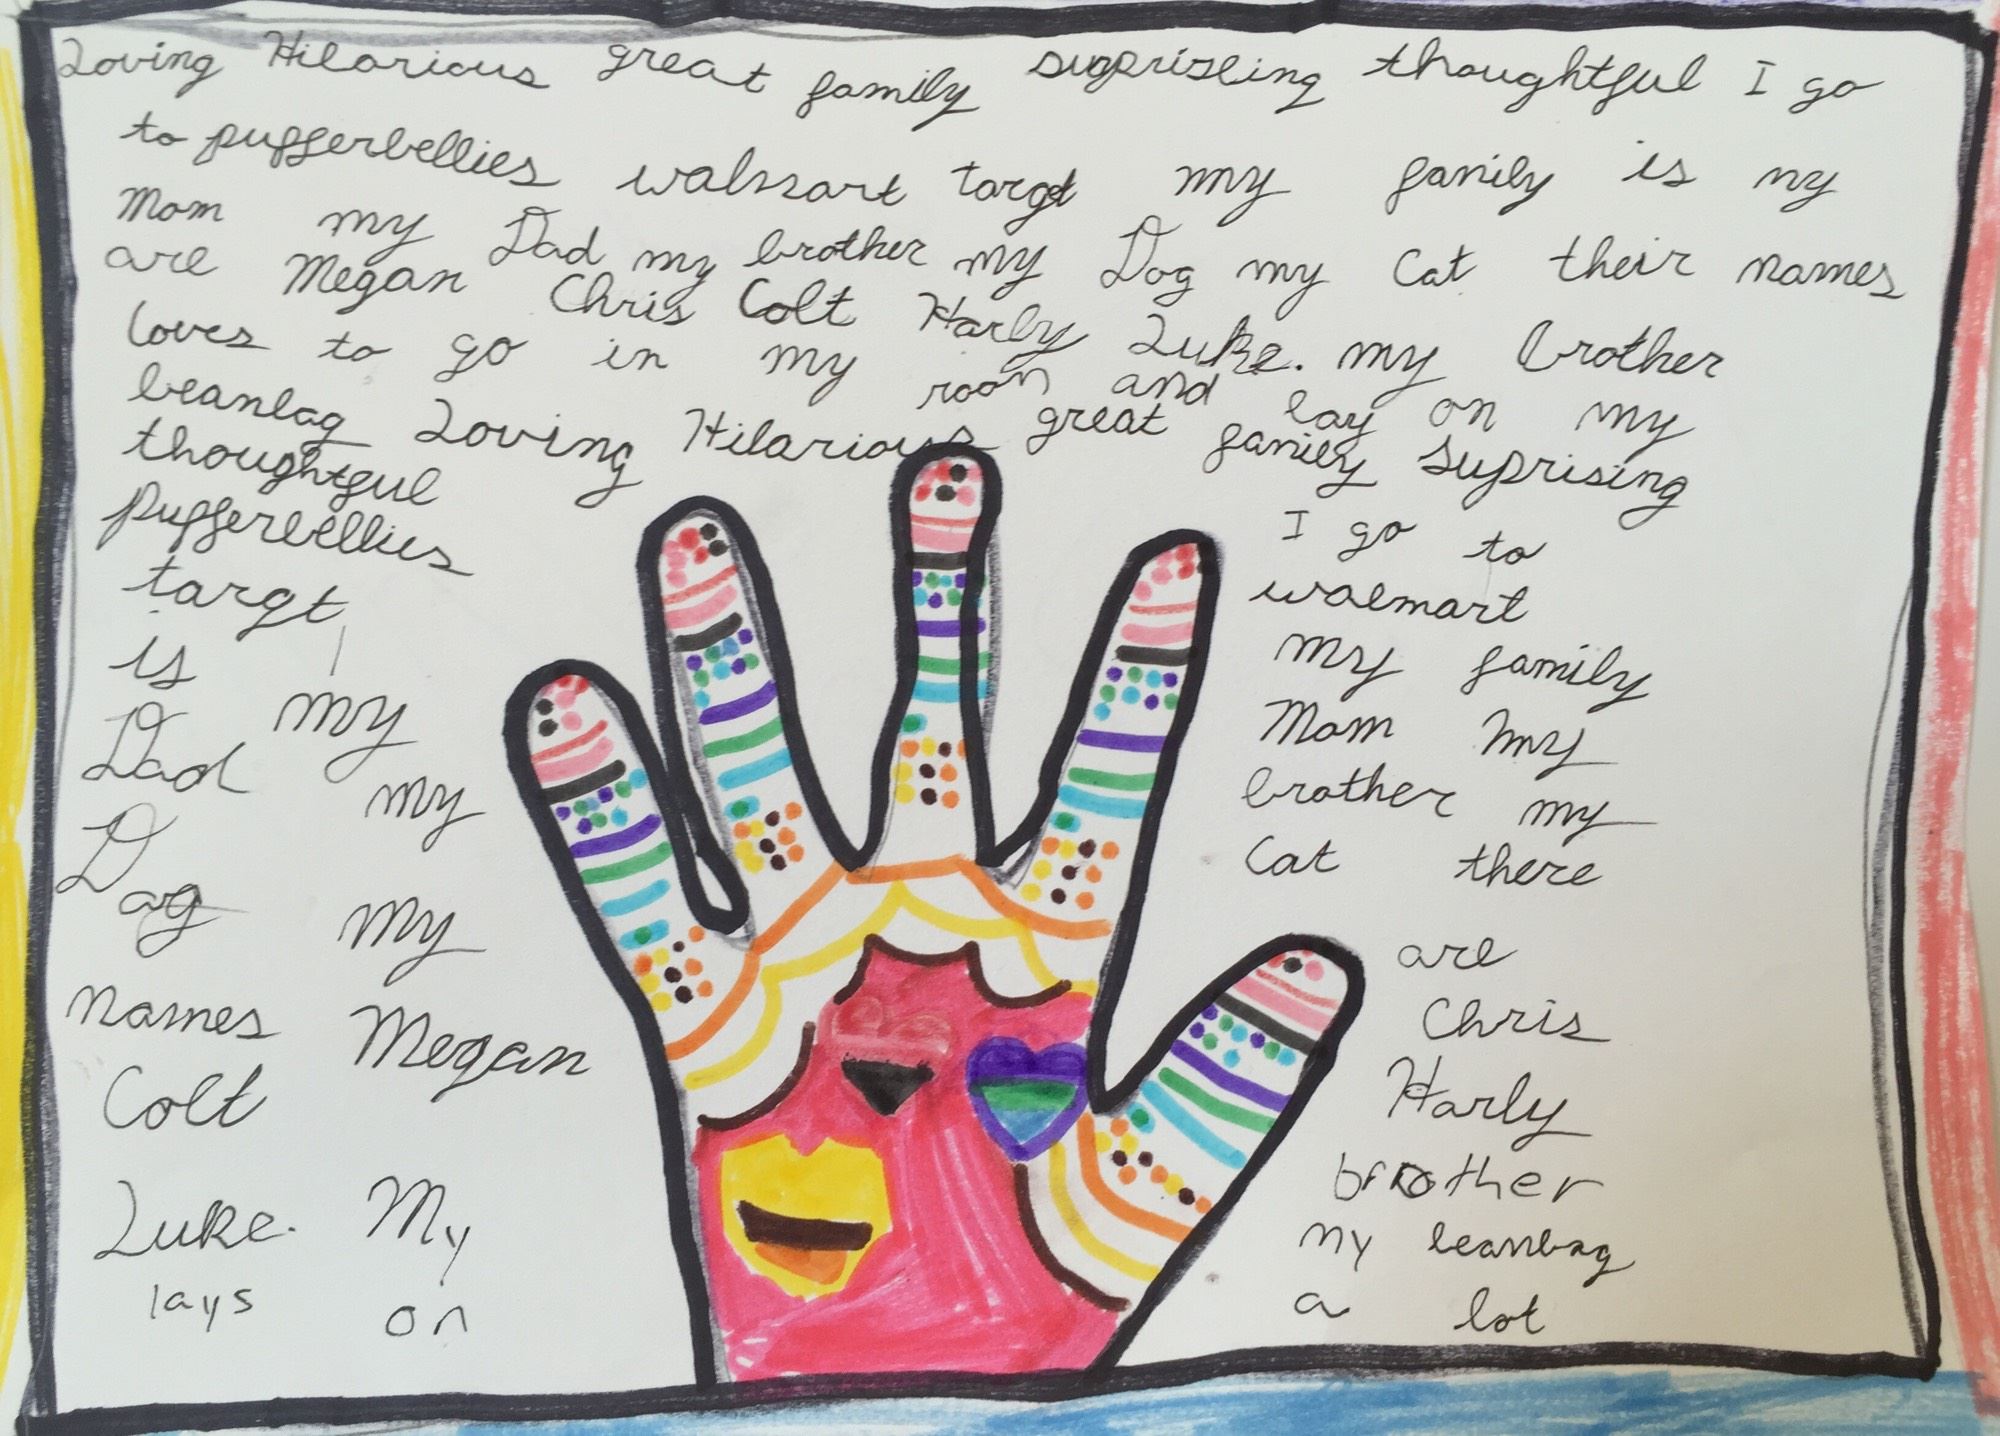 Loving Hilarious great family suprizeing thoughtful I go
to pufferbellies walmart targt my family is my
Mom my Dad my brother my Dog my Cat their names
are Megan Chris Colt Harly Luke. my brother
loves to go in my room and lay on my
beanbag Loving Hilarious great family suprising
thoughtful I go to
pufferbellies walmart
targt my family
is my Mom my
Dad my brother my
Dog my Cat there
names Megan are Chris
Colt Harly
Luke. My brother
lays on my beanbag
a lot